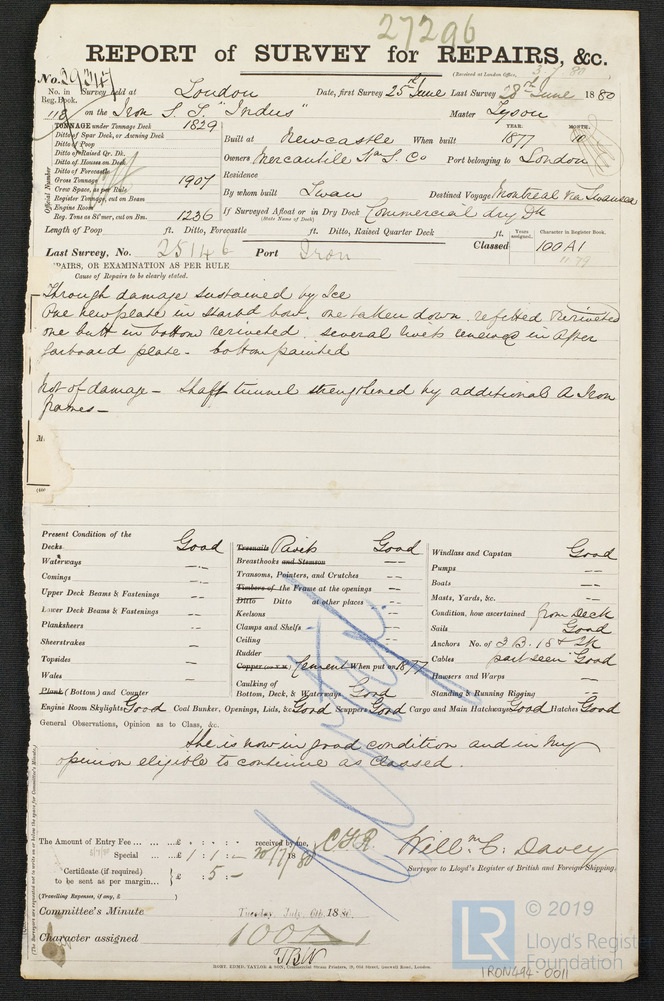 27296
REPORT of SURVEY for REPAIRS, &c.
(Received at London Office, 3/7/80)
No. 39347
No. in Survey held at London Date, first Survey 25th June Last Survey 28th June 1880
Reg. Book.
110 on the Iron S. S. "Indus" Master Tyson
TONNAGE under Tonnage Deck 1829
Ditto of Spar Deck, or Awning Deck
Ditto of Poop
Ditto of Raised Qr. Dk.
Ditto of Houses on Deck
Ditto of Forecastle
Gross Tonnage 1907
Crew Space, as per Rule
Register Tonnage, cut on Beam
Engine Room
Reg. Tons as St'mer, cut on Bm. 1236
Official Number
Built at Newcastle When built YEAR. 1877 MONTH. 10
Owners Mercantile Sm S. Co Port belonging to London
Residence
By whom built Swan Destined Voyage Montreal via Swansea
If Surveyed Afloat or in Dry Dock Commercial dry Dk
(State Name of Dock)
Length of Poop ft. Ditto, Forecastle ft. Ditto, Raised Quarter Deck ft.
Years assigned. Character in Register Book.
Last Survey, No. 25146 Port Iron Classed 100A1
11.79
PAIRS, OR EXAMINATION AS PER RULE
Cause of Repairs to be clearly stated.
Through damage sustained by Ice
One new plate in starbd bow, one taken down refitted & reriveted
one butt in bottom reriveted several rivets renewed in after
garboard plate - bottom painted
Not of damage - Shaft tunnel strengthened by additional A Iron
frames -
Present Condition of the
Decks Good
Waterways
Comings
Upper Deck Beams & Fastenings
Lower Deck Beams & Fastenings
Planksheers
Sheerstrakes
Topsides
Wales
Plank (Bottom) and Counter
Treenails Rivets Good
Breasthooks and Stemson
Transoms, Pointers, and Crutches
Timbers of the Frame at the openings
Ditto Ditto at other places
Keelsons
Clamps and Shelfs
Ceiling
Rudder
Copper Cement When put on 1877
Caulking of
Bottom, Deck, & Waterways Good
Windlass and Capstan Good
Pumps
Boats
Masts, Yards, &c.
Condition, how ascertained from Deck
Sails Good
Anchors No. of 3 B. 1 S & 2 K
Cables part seen Good
Hawsers and Warps
Standing & Running Rigging
Engine Room Skylights Good Coal Bunker, Openings, Lids, &c Good Scuppers Good Cargo and Main Hatchways Good Hatches Good
General Observations, Opinion as to Class, &c.
She is now in good condition and in my
opinion eligible to continue as classed.
The Amount of Entry Fee ... £ : : received by me,
Special ... £ 1 : 1 : - 20/7/1880 C.F.R.
Certificate (if required) to be sent as per margin... £ : 5 : -
(Travelling Expenses, if any, £ )
Willm C. Davey
Surveyor to Lloyd's Register of British and Foreign Shipping.
Committee's Minute Tuesday July 6th 1880.
Character assigned 100A1
TBW
© 2019
LR
Lloyd's Register
Foundation
IRON494-0011